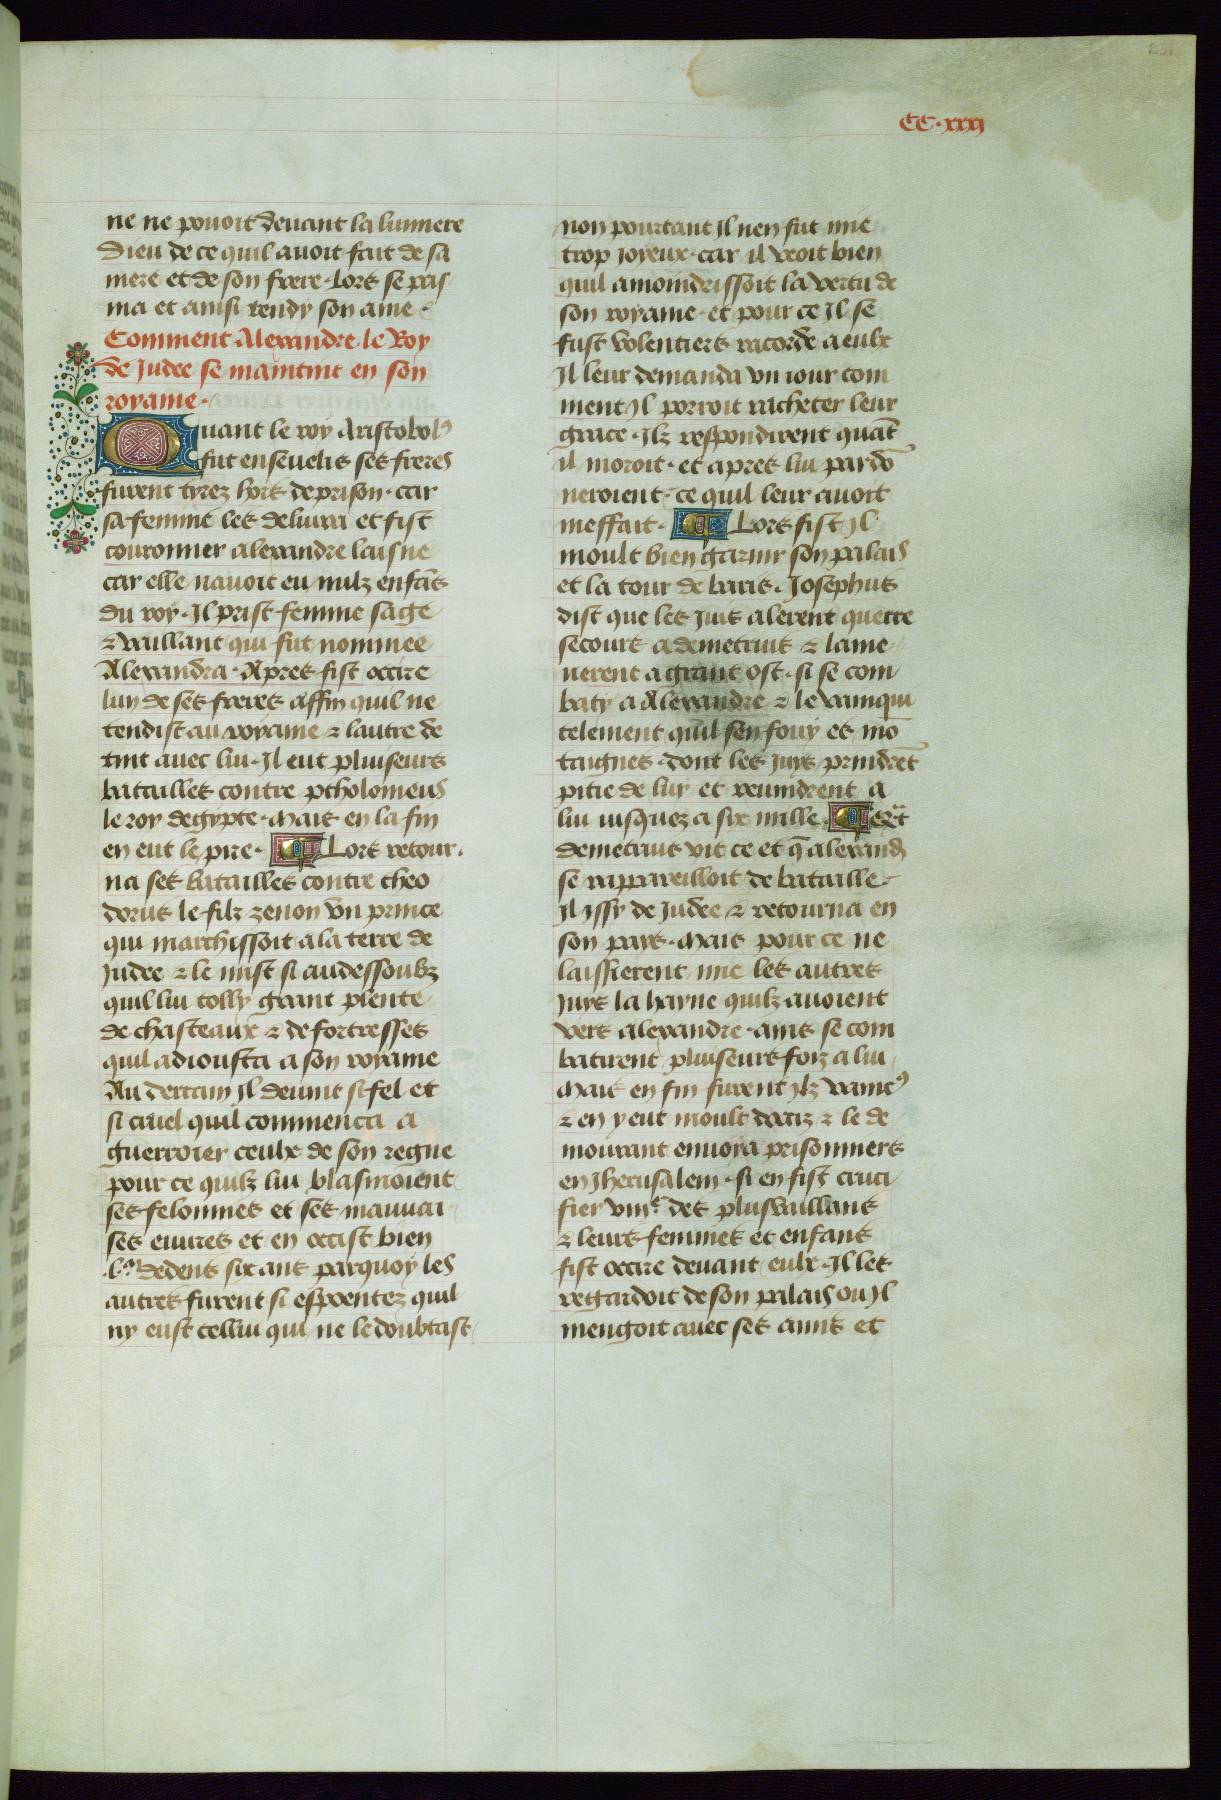 CC.xxxj
ne ne pouoit deuant la lumiere
Dieu de ce quil auoit fait de sa
mere et de son frere. Lors se pas
ma et ainsi rendy son ame.
Comment Alexandre le Roy
de Judee se maintint en son
royame.
Quant le roy Aristobolꝰ
fut enseuelis ses freres
furent tyrez hors de prison. car
sa femme les deliura et fist
couronner alexandre laisne
car elle nauoit eu nulz enfās
du roy. Il prist femme sage
⁊ vaillant qui fut nommee
Alexandra. Apres fist occire
lun de ses freres affin quil ne
tendist au royame ⁊ lautre de
tint auec lui. Il eut pluiseurs
batailles contre ptholomeus
le roy degypte. Mais en la fin
en eut le pire. Lors retour.
na ses batailles contre theo
dorus le filz zenon vn prince
qui marchissoit a la terre de
Judee ⁊ le mist si audessoubz
quil lui tolly grant plente
de chasteaux ⁊ de fortresses
quil adiousta a son royame
Au derrain Il deuint si fel et
si cruel quil commenca a
guerroier ceulx de son regne
pour ce quilz lui blasmoient
ses felonnies et ses mauuai
ses euures et en occist bien
.l.ᵐ dedens six ans parquoy les
autres furent si espoentez quil
ny eust cellui qui ne le doubtast
non pourtant Il nen fut mie
trop joyeux. car il veoit bien
quil amoindrissoit la vertu de
son royame. et pour ce Il se
fust volentiers racorde a eulx
Il leur demanda vn iour com
ment Il porroit racheter leur
grace. Ilz respondirent quāt
il moroit. et apres lui pardō
neroient. ce quil leur auoit
meffait. Lors fist Il
moult bien garnir son palais
et la tour de baris. Josephus
dist que les Juis alerent querre
secours a demetrius ⁊ lame
nerent a grant ost. si se com
baty a Alexandre ⁊ le vainqui
telement quil sen fouy es mō
taignes. dont les Juys prindrēt
pitie de luy et reuindrent a
lui iusquez a six mille.
demetrius vit ce et q̄ alexand
se rappareilloit de bataille
Il issy de Judee ⁊ retourna en
son pays. Mais pour ce ne
laissierent mie les autres
Juys la hayne quilz auoient
vers alexandre. ains se com
batirent pluiseurs foiz a lui
Mais en fin furent Ilz vaincꝰ
⁊ en y eut moult docciz ⁊ le de
mourant enuoya prisonniers
en Jherusalem. si en fist cruci
fier viijᶜ des plus vaillans
⁊ leurs femmes et enfans
fist occire deuant eulx. Il les
regardoit de son palais ou Il
mengoit auec ses amis et